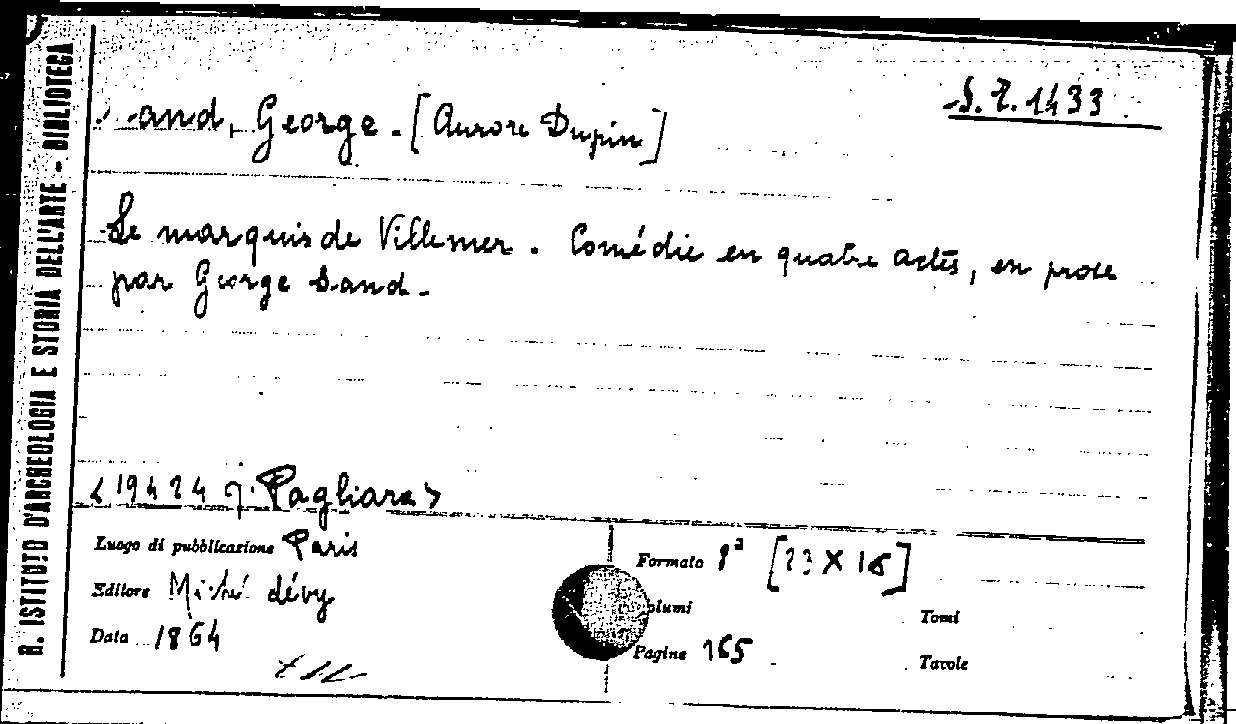 R. ISTITUTO D'ARCHEOLOGIA E STORIA DELL'ARTE - BIBLIOTECA
S. T. 1433
Sand, George. - [Aurore Dupin]
Le marquis de Villemer. Comédie en quatre actes, en prose
par George Sand. -
<19424 J. Pagliara>
Luogo di pubblicazione Paris
Editore Michel Lévy
Data 1864
Formato 8°
Volumi
Tomi
Pagine 165
Tavole